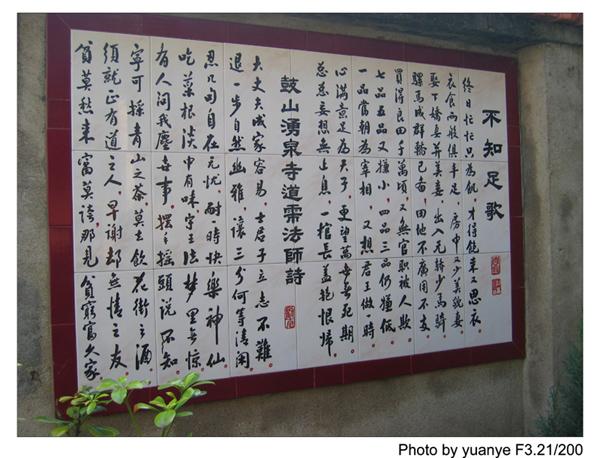 不知足歌
終日忙忙只為飢 才得飽來又思衣
衣食兩般俱丰足 房中又少美貌妻
娶下嬌妻并美妾 出入无轎少馬騎
騾馬成群轎已备 田地不廣用不支
買得良田千萬頃 又無官职被人欺
七品五品又嫌小 四品三品仍嫌低
一品當朝為宰相 又想君王做一時
心滿意足為天子 更望萬世無死期
妄想無止息 一棺長蓋抱恨歸
鼓山湧泉寺道霈法師詩
大丈夫成家容易 士君子立志不難
退一步自然幽雅 讓三分何等清閑
忍几句自在无忧 耐一時快樂神仙
吃菜根淡中有味 守王法梦里無惊
有人問我塵世事 擺手搖頭說不知
寧可採青山之茶 莫去飲花街之酒
須就正有道之人 早謝却無情之友
貧莫愁來富莫誇 那見貧窮富久家
Photo by yuanye F3.21/200